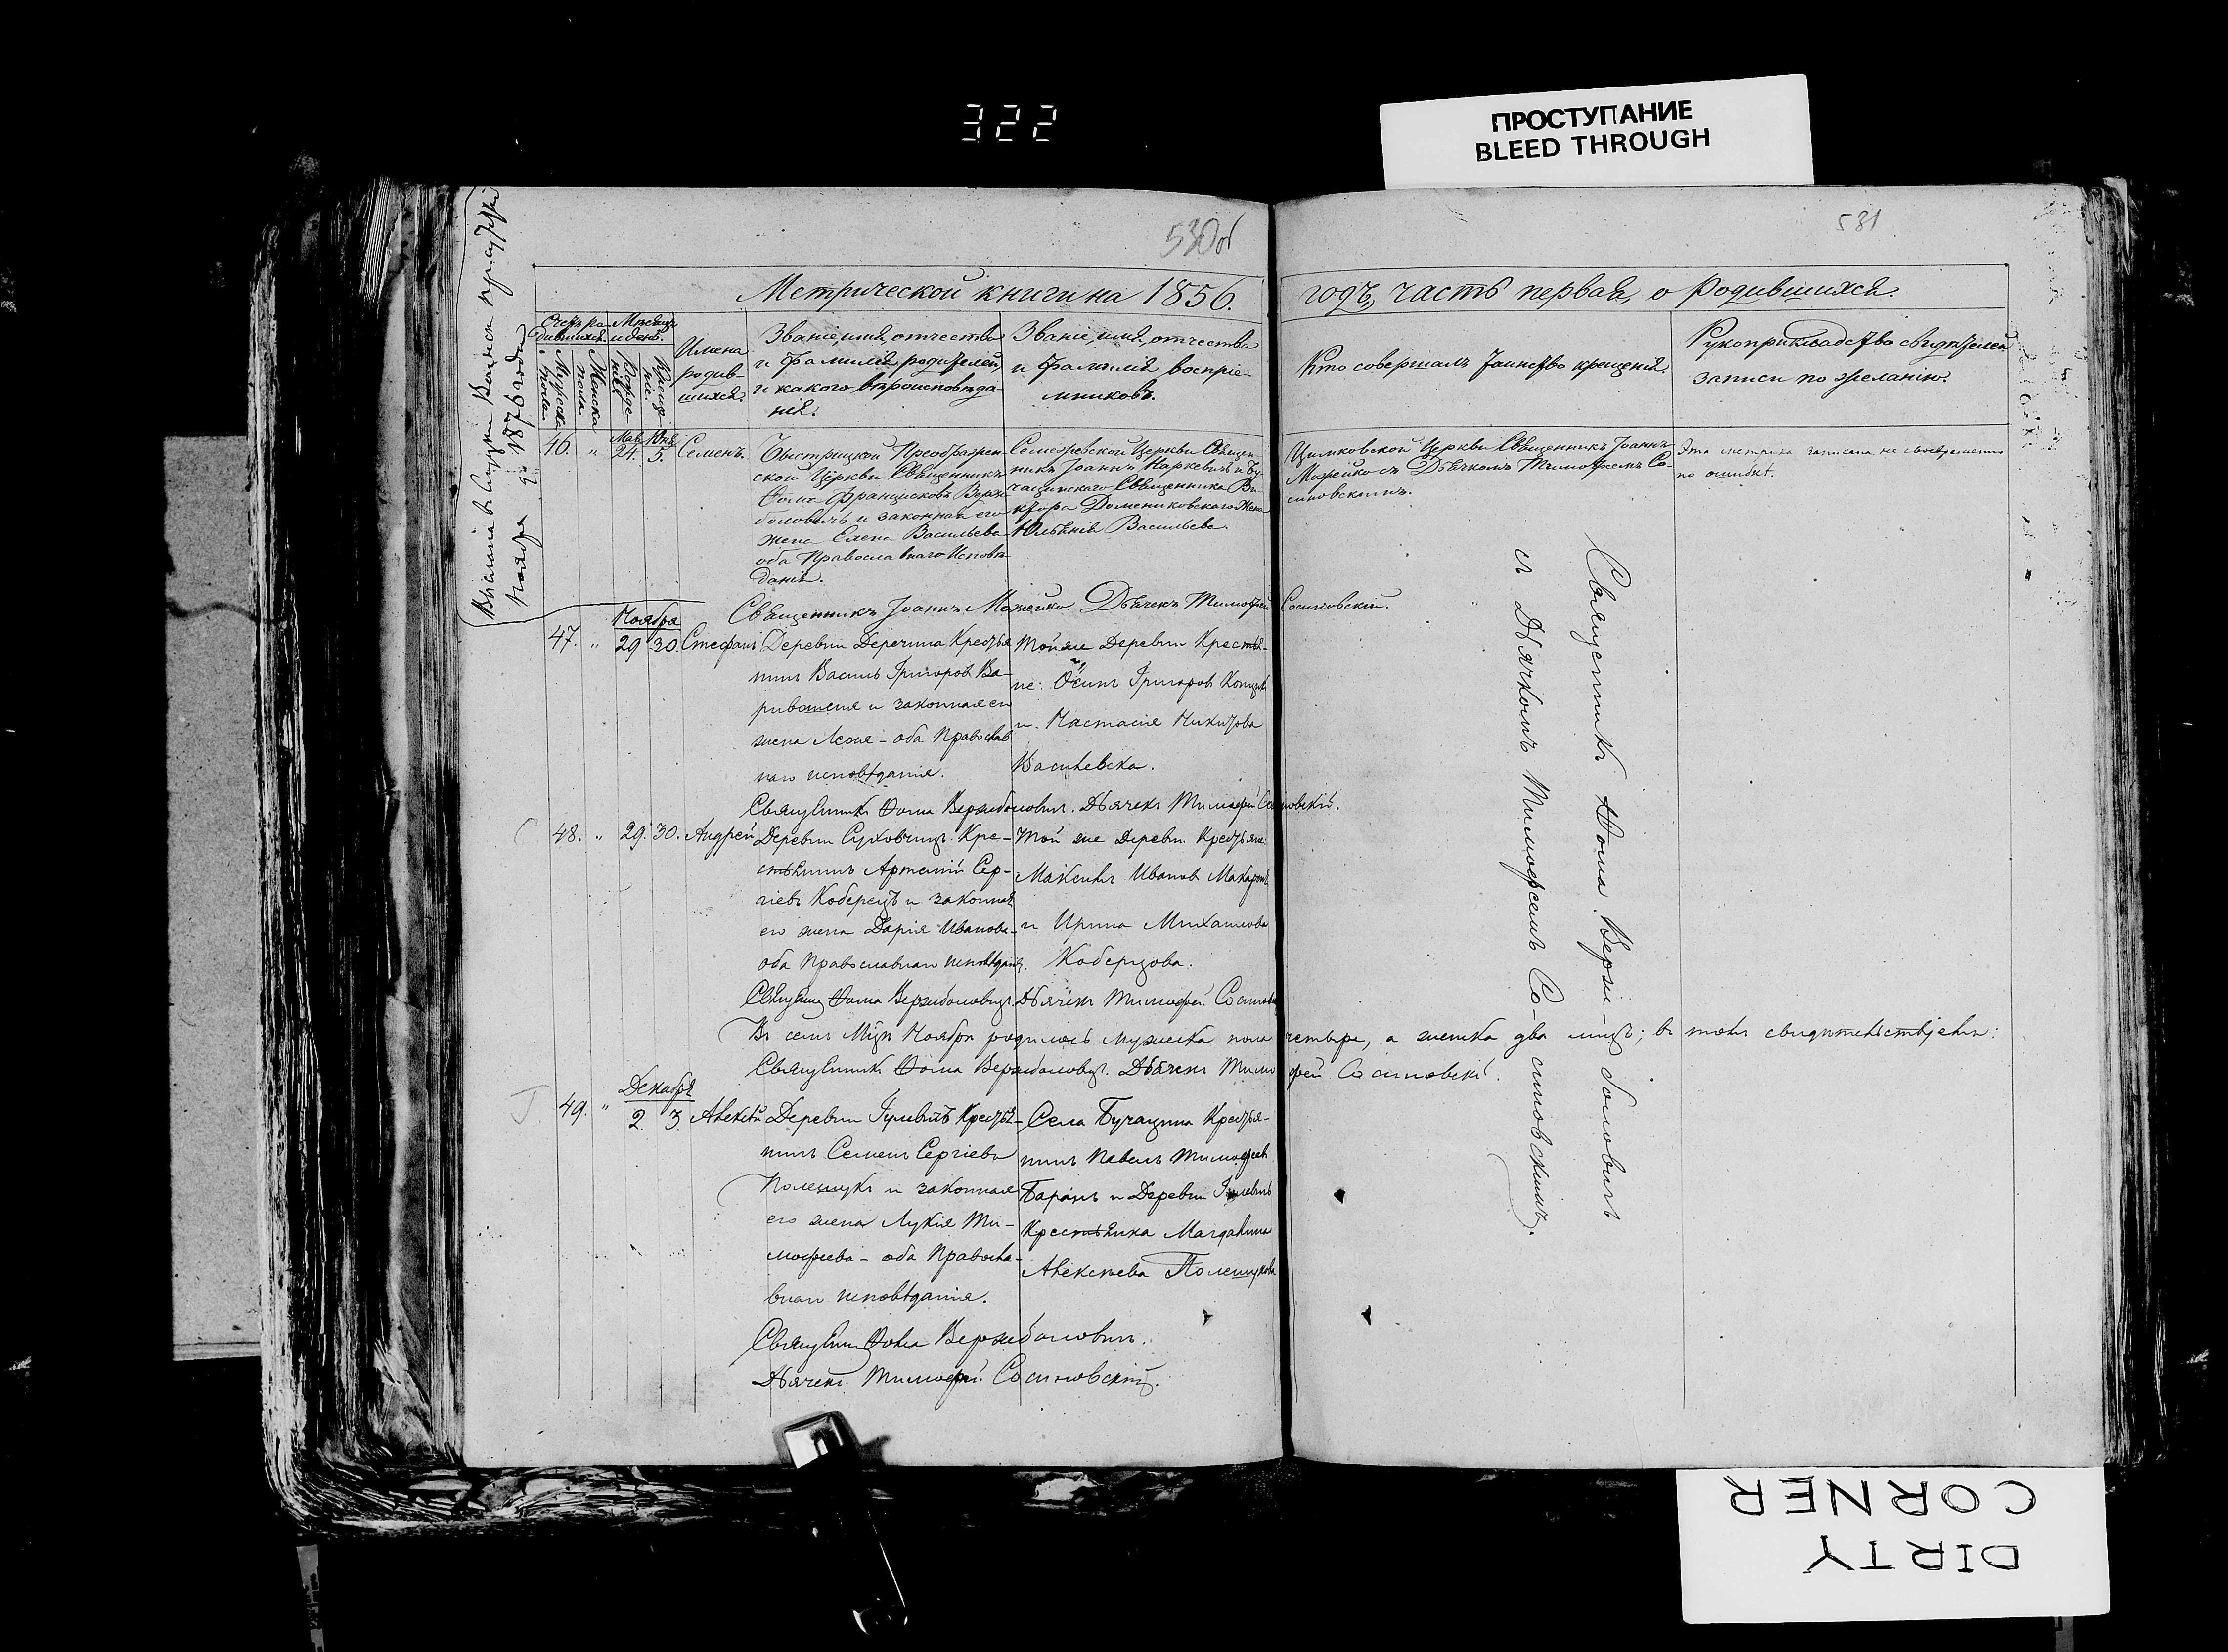 322
ПРОСТУПАНИЕ
BLEED THROUGH
530об
531
Метрической книги на 1856. годъ, часть первая, о родившихся.
Мѣсяцъ и день.
Мужеска пола.
Женска пола.
Рожденіе.
Крещеніе.
Имена
родив-
шихся.
Званіе, имя, отчество
и фамилія родителей,
и какого вѣроисповѣда-
нія.
Званіе, имя, отчество
и фамилія воспріе-
мниковъ.
Кто совершалъ таинство крещенія.
Рукоприкладство свидѣтелей
записи по желанію.
Ноября 1876 года
46. " Мая 24. Юня 5. Семенъ.
Преображен-
ской Церкви Священникъ
Фома Францисковъ Верж-
боловичъ и законная его
жена Елена Васильева
оба Православнаго Исповѣ-
данія.
Церкви Священ-
никъ Іоаннъ Наркевичъ и Бу-
чатинскаго Священника Ви-
ктора Домениковскаго жена
Юльянія Васильева.
Цимковской Церкви Священникъ Іоаннъ
Можейко съ Дьячкомъ Тимофеемъ Со-
синовскимъ.
Эта метрика записана не своевременно
по ошибкѣ.
Священникъ Іоаннъ Можейко. Дьячекъ Тимофей Сосиновскій.
Ноября
47. " 29 30. Стефанъ
Деревни Деречина Крестья
нинъ Василь Григоровъ
и законная его
жена – оба Православ
наго исповѣданія.
Той же Деревни Крестья-
не: Осипъ Григоровъ
и Настасія Никитова
Васильевска.
Священникъ Фома Вержболовичъ. Дьячекъ Тимофей Сосиновскій.
48. " 29. 30. Андрей
Деревни Кре-
стьянинъ Артемій Сер-
гіевъ Коберецъ и законная
его жена Дарія Иванова –
оба Православнаго исповѣданія.
Той же Деревни Крестьяне:
Максимъ Ивановъ
и Ирина Михайлова
Коберцова.
Священникъ Фома Вержболовичъ Дьячекъ Тимофей Сосиновскій
Въ семъ Мцѣ Ноябрѣ родилось мужеска пола четыре, а женска два лица; въ томъ свидѣтельствуемъ:
Священникъ Фома Вержболовичъ. Дьячекъ Тимофей Сосиновскій.
Декабря
49. " 2. 3. Алексѣй
Деревни Гулевичъ Крестья-
нинъ Семенъ Сергіевъ
Полещукъ и законная
его жена Лукія Ти-
мофеева – оба Правосла-
внаго исповѣданія.
Села Бучатина Крестья-
нинъ Павелъ Тимофеевъ
Баранъ и Деревни Гулевичъ
Крестьянка Магдалина
Алексѣева Полещукова
Священникъ Фома Вержболовичъ.
Дьячекъ Тимофей Сосиновскій.
Священникъ Фома Верж-боловичъ
съ Дьячкомъ Тимофеемъ Со-синовскимъ.
DIRTY
CORNER